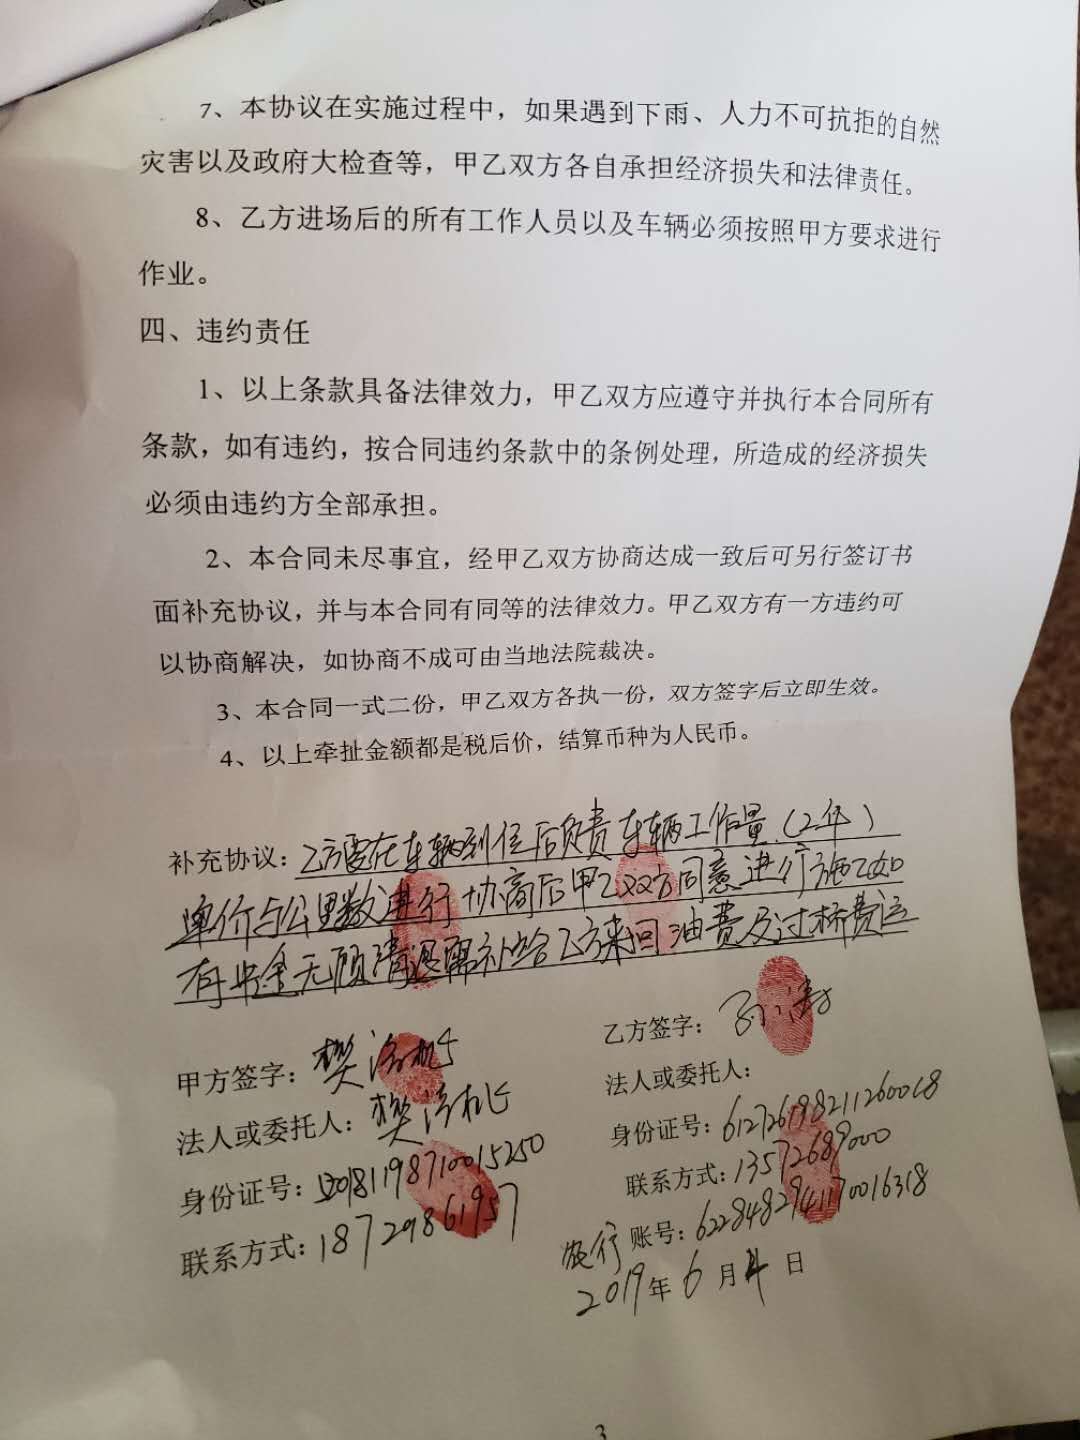 7、本协议在实施过程中，如果遇到下雨、人力不可抗拒的自然
灾害以及政府大检查等，甲乙双方各自承担经济损失和法律责任。
8、乙方进场后的所有工作人员以及车辆必须按照甲方要求进行
作业。
四、违约责任
1、以上条款具备法律效力，甲乙双方应遵守并执行本合同所有
条款，如有违约，按合同违约条款中的条例处理，所造成的经济损失
必须由违约方全部承担。
2、本合同未尽事宜，经甲乙双方协商达成一致后可另行签订书
面补充协议，并与本合同有同等的法律效力。甲乙双方有一方违约可
以协商解决，如协商不成可由当地法院裁决。
3、本合同一式二份，甲乙双方各执一份，双方签字后立即生效。
4、以上牵扯金额都是税后价，结算币种为人民币。
补充协议：乙方要在车辆到位后负责车辆工作量（2年）
单价与公里数进行协商后甲乙双方同意进行施乙如
有 无顾清退需补给乙方来回油费及过桥费运
甲方签字：樊
乙方签字：
法人或委托人：樊
法人或委托人：
身份证号：
身份证号：612726198211260018
联系方式：18729861957
联系方式：13572689000
农行 账号：6228482941170016318
2019年6月 日
3